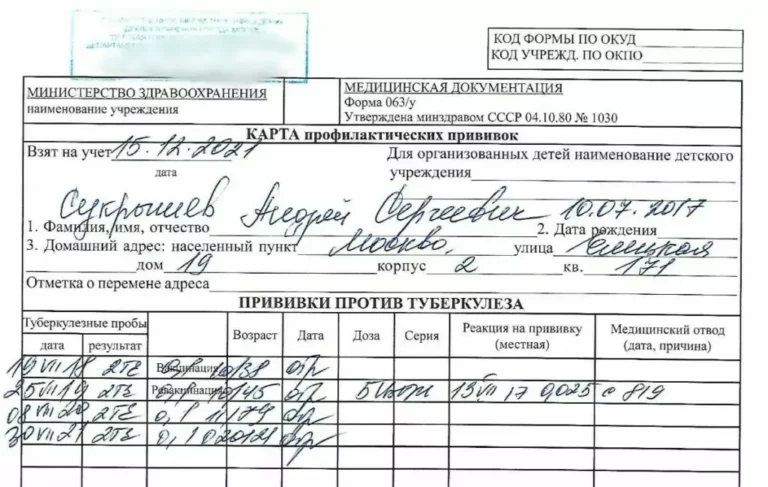 КОД ФОРМЫ ПО ОКУД
КОД УЧРЕЖД. ПО ОКПО
МИНИСТЕРСТВО ЗДРАВООХРАНЕНИЯ
наименование учреждения
МЕДИЦИНСКАЯ ДОКУМЕНТАЦИЯ
Форма 063/у
Утверждена минздравом СССР 04.10.80 № 1030
КАРТА профилактических прививок
Взят на учет 15.12.2021
дата
Для организованных детей наименование детского
учреждения
Сукрышев Андрей Сергеевич 10.07.2017
1. Фамилия, имя, отчество 2. Дата рождения
3. Домашний адрес: населенный пункт Москва, улица Елецкая
дом 19 корпус 2 кв. 171
Отметка о перемене адреса
ПРИВИВКИ ПРОТИВ ТУБЕРКУЛЕЗА
Туберкулезные пробы
дата результат Возраст Дата Доза Серия Реакция на прививку (местная) Медицинский отвод (дата, причина)
19 VII 18 2ТЕ Вакцинация 0,1 отр
25 VII 19 2ТЕ Ревакцинация 0,1 отр 13 VII 17 0,025 с 819
08 VII 20 2ТЕ 0,1 отр
30 VII 21 2ТЕ 0,1 отр